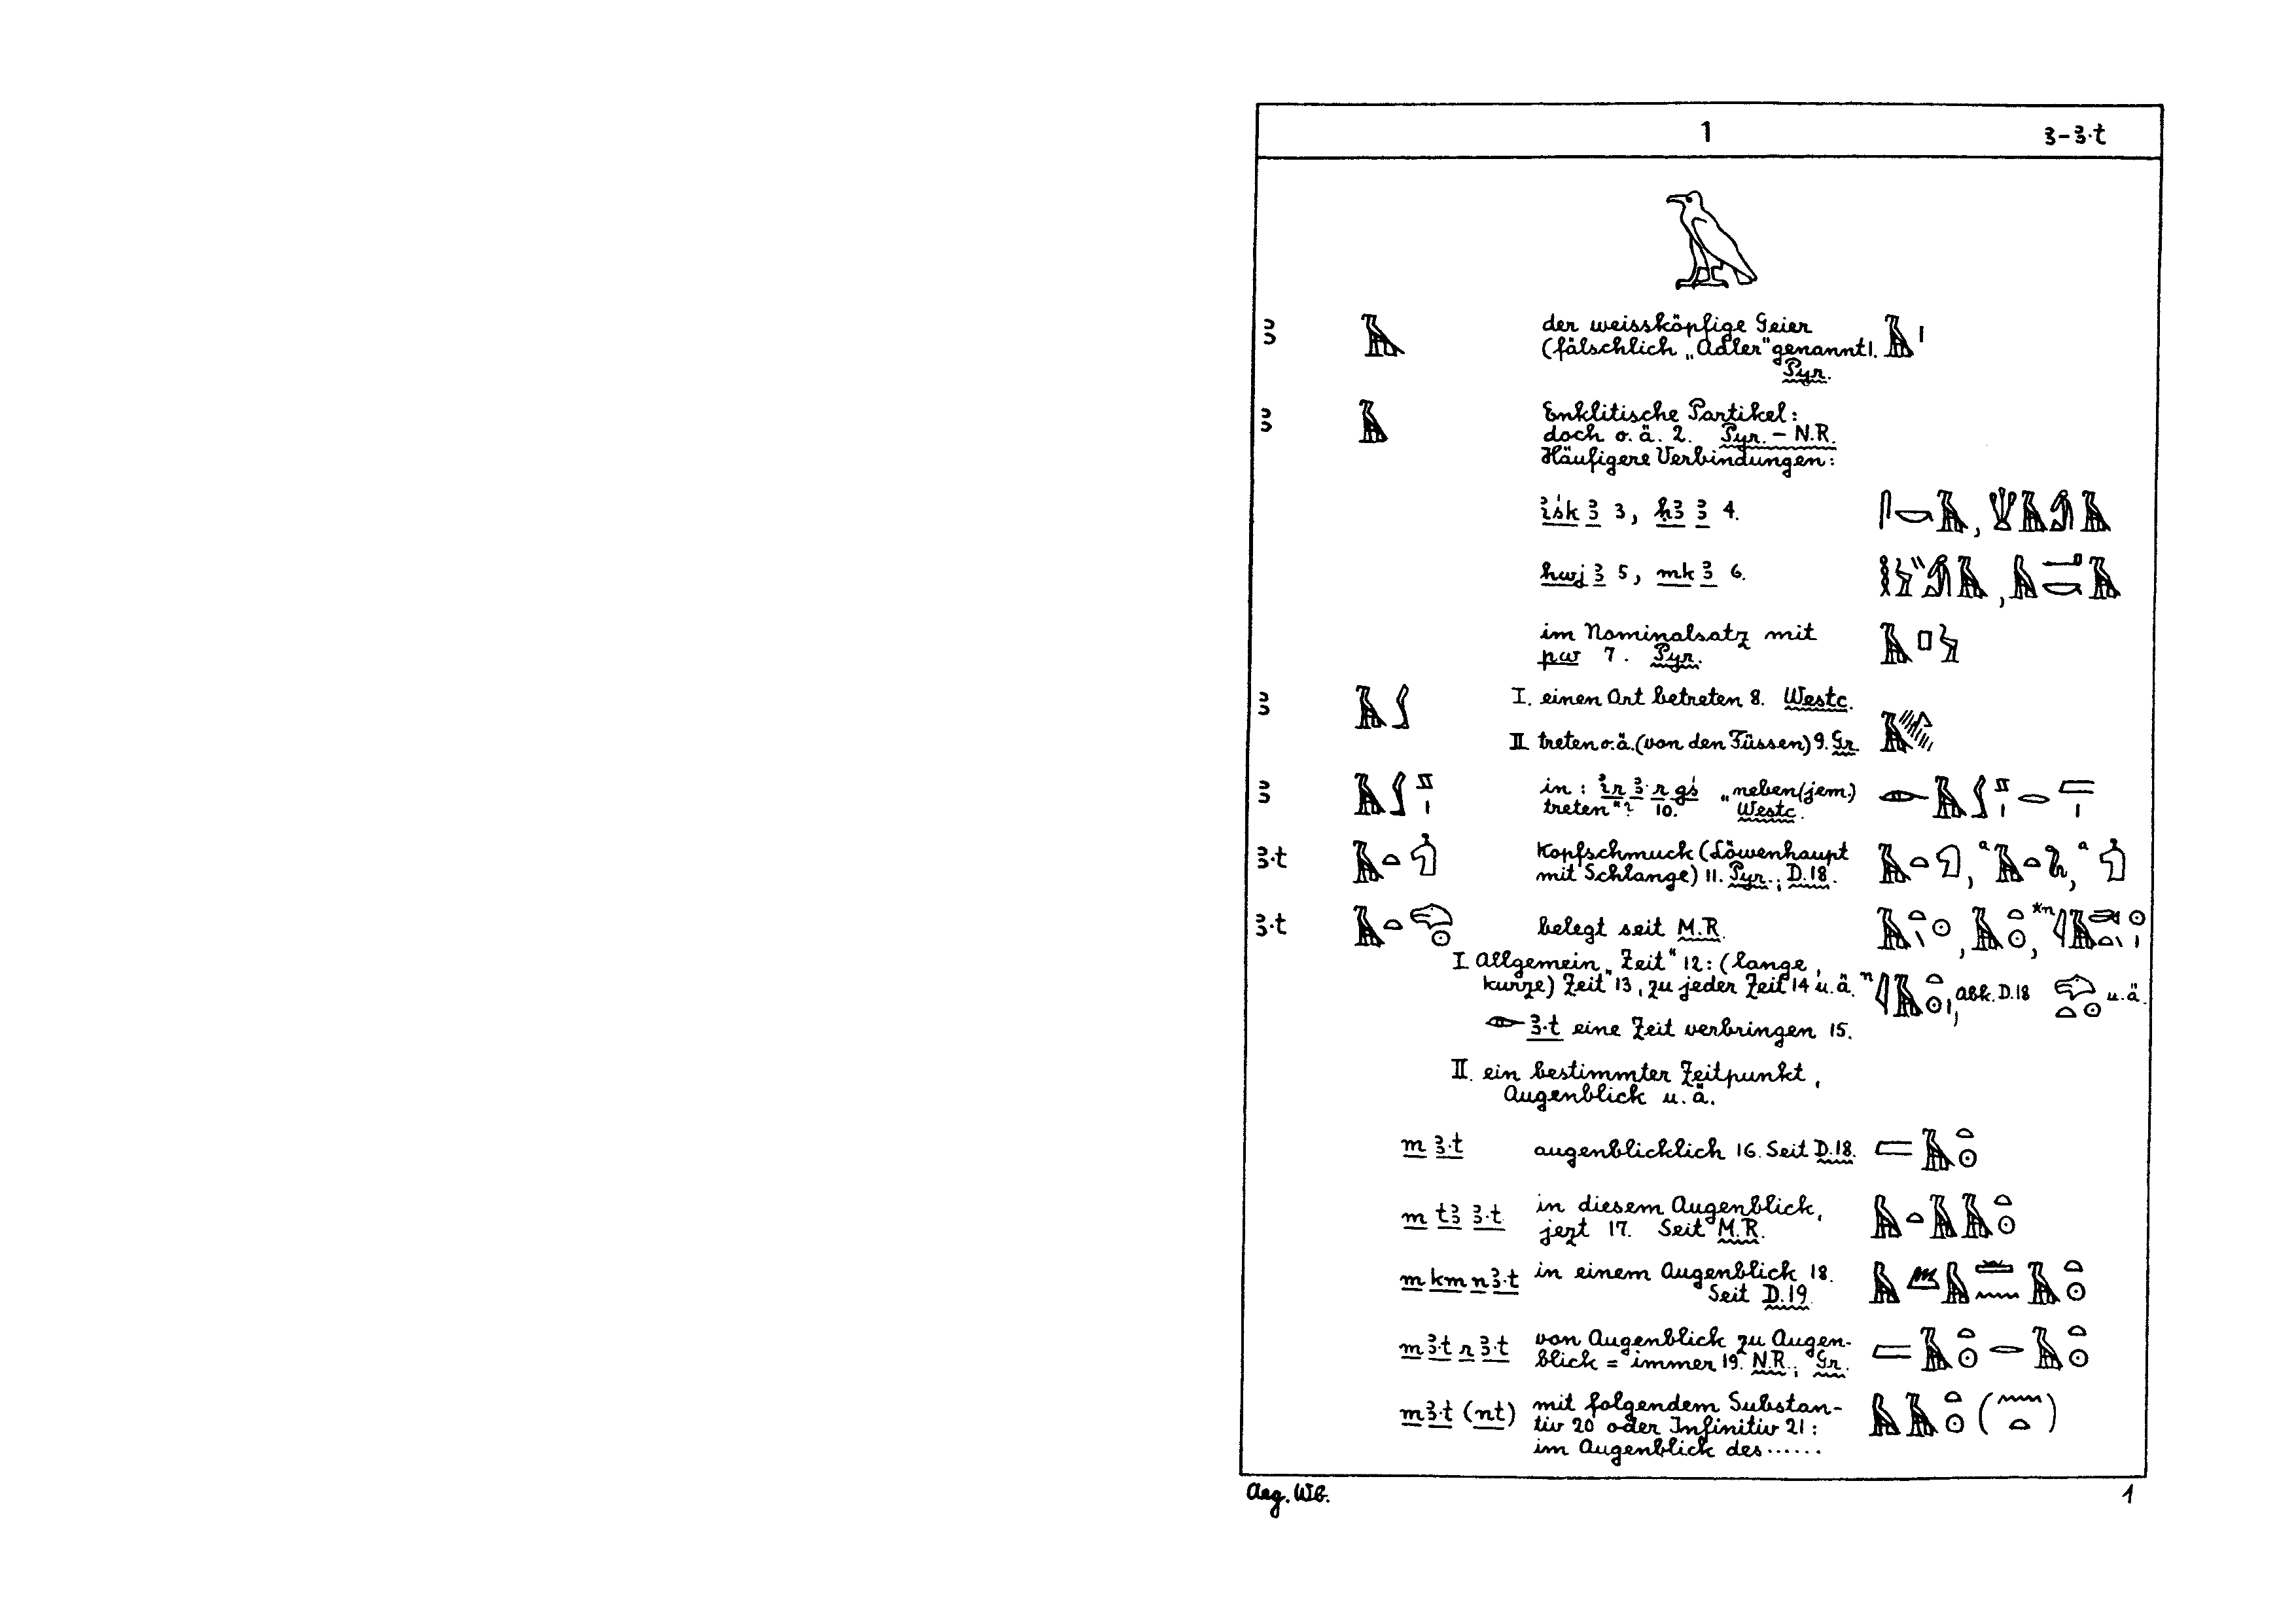 1 ꜣ-ꜣ·t
ꜣ 𓄿 der weissköpfige Geier 𓄿𓏤
(fälschlich „Adler“ genannt) 1.
Pyr.
ꜣ 𓄿 Enklitische Partikel:
doch o.ä. 2. Pyr. – N.R.
Häufigere Verbindungen:
ꞽśk ꜣ 3, hꜣ ꜣ 4.
ḥwj ꜣ 5, mk ꜣ 6.
im Nominalsatz mit 𓄿𓊪𓅱
pw 7. Pyr.
ꜣ 𓄿𓃀 I. einen Ort betreten 8. Westc.
II. treten o.ä. (von den Füssen) 9. Gr.
ꜣ in: ꞽr ꜣ r gś „neben (jem.)
treten“? 10. Westc.
ꜣ·t Kopfschmuck (Löwenhaupt
mit Schlange) 11. Pyr.; D.18.
ꜣ·t belegt seit M.R.
I. Allgemein „Zeit“ 12: (lange,
kurze) Zeit 13, zu jeder Zeit 14 u.ä. abk. D.18 u.ä.
𓁹 ꜣ·t eine Zeit verbringen 15.
II. ein bestimmter Zeitpunkt,
Augenblick u.ä.
m ꜣ·t augenblicklich 16. Seit D.18. 𓐝𓄿𓏏𓇳
m tꜣ ꜣ·t in diesem Augenblick, 𓅓𓏏𓄿𓄿𓏏𓇳
jezt 17. Seit M.R.
m km n ꜣ·t in einem Augenblick 18. 𓅓𓆎𓅓𓏛𓈖𓄿𓏏𓇳
Seit D.19.
m ꜣ·t r ꜣ·t von Augenblick zu Augen- 𓐝𓄿𓏏𓇳𓂋𓄿𓏏𓇳
blick = immer 19. N.R.; Gr.
m ꜣ·t (nt) mit folgendem Substan- 𓅓𓄿𓏏𓇳(𓈖𓏏)
tiv 20 oder Infinitiv 21:
im Augenblick des ......
Aeg. Wb. 1